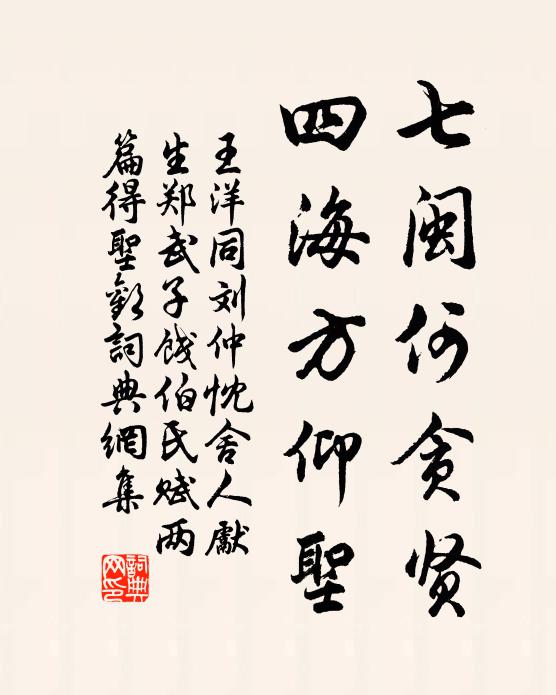 七闽何贪贤
四海方仰聖
王洋同刘仲忱舍人獻
生郑武子饯伯氏赋两
篇得聖歡詞典網集
詞典
网印